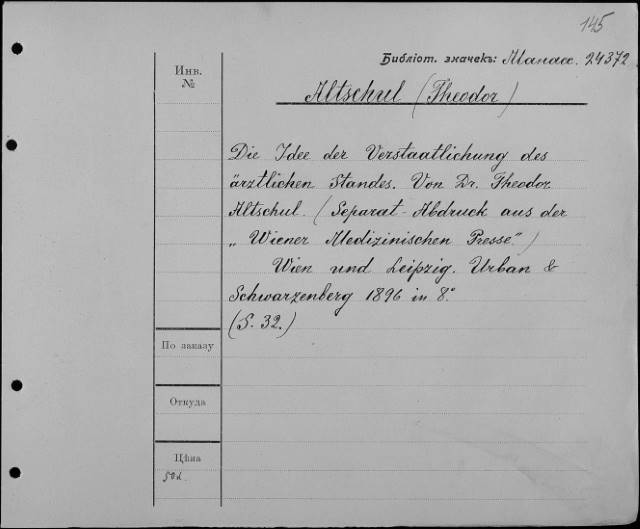 145
Библіот. значекъ: Манасс. 24372
Инв.
№
Altschul (Theodor)
Die Idee der Verstaatlichung des
ärztlichen Standes. Von Dr. Theodor
Altschul. (Separat-Abdruck aus der
„Wiener Medizinischen Presse“)
Wien und Leipzig. Urban &
Schwarzenberg 1896 in 8.°
(S. 32.)
По заказу
Откуда
Цѣна